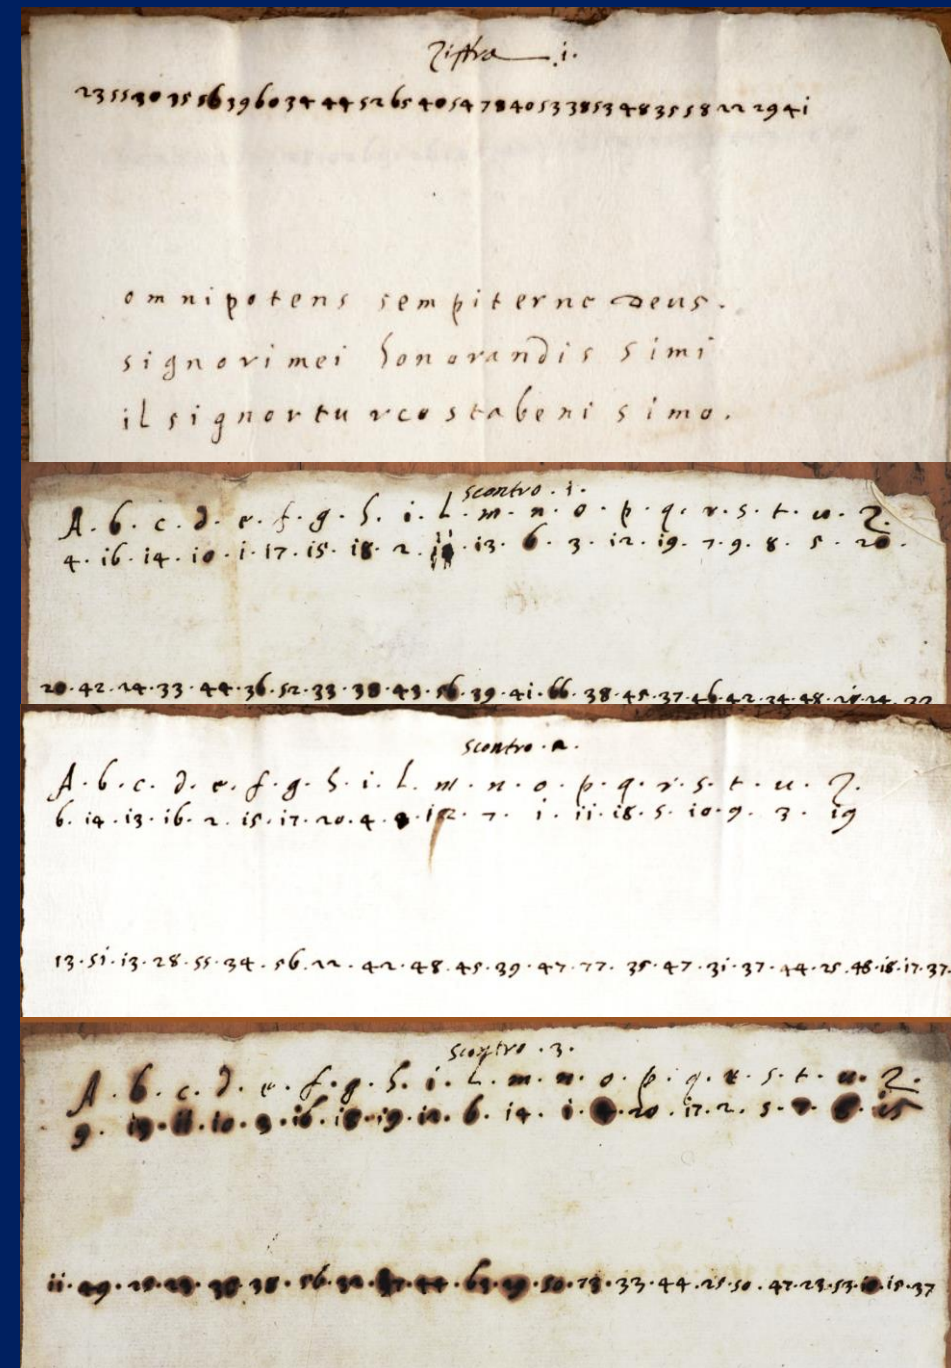 Ziffra .i.
omnipotens sempiterne Deus.
signorimei honorandis simi
il signortu rcostabeni simo.
scontro . i .
A . b . c . d . e . f . g . h . i . L . m . n . o . p . q . r . s . t . u . Z .
4 . i6 . i4 . i0 . i . i7 . i5 . i8 . 2 . . i3 . 6 . 3 . i2 . i9 . 7 . 9 . 8 . 5 . 20 .
20 . 42 . 24 . 33 . 44 . 36 . 52 . 33 . 38 . 43 . 56 . 39 . 4i . 66 . 38 . 45 . 37 . 46 . 42 . 34 . 48 .
scontro . 2 .
A . b . c . d . e . f . g . h . i . l . m . n . o . p . q . r . s . t . u . Z .
6 . i4 . i3 . i6 . 2 . i5 . i7 . 20 . 4 . 8 . i2 . 7 . i . ii . i8 . 5 . i0 . 9 . 3 . i9
13 . 5i . i3 . 28 . 55 . 34 . 56 . 22 . 42 . 48 . 45 . 39 . 47 . 77 . 35 . 47 . 3i . 37 . 44 . 25 . 48 . i8 . i7 . 37 .
scontro . 3 .
A . b . c . d . e . f . g . h . i . L . m . n . o . p . q . r . s . t . u . Z .
9 . i3 . ii . i0 . 3 . i6 . i8 . i9 . i2 . 6 . i4 . i . 4 . 20 . i7 . 2 . 5 . 7 . 8 . i5
ii . 49 . 56 . 32 . 44 . 63 . 50 . 73 . 33 . 44 . 25 . 50 . 47 . 23 . 53 . i5 . 37